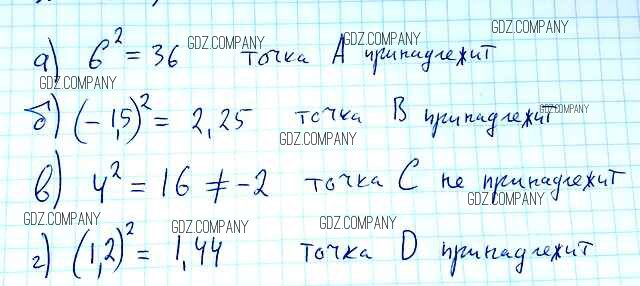 а) 6² = 36 точка A принадлежит
GDZ.COMPANY GDZ.COMPANY GDZ.COMPANY
б) (-1,5)² = 2,25 точка B принадлежит
GDZ.COMPANY GDZ.COMPANY
в) 4² = 16 ≠ -2 точка C не принадлежит
GDZ.COMPANY GDZ.COMPANY GDZ.COMPANY GDZ.COMPANY
г) (1,2)² = 1,44 точка D принадлежит